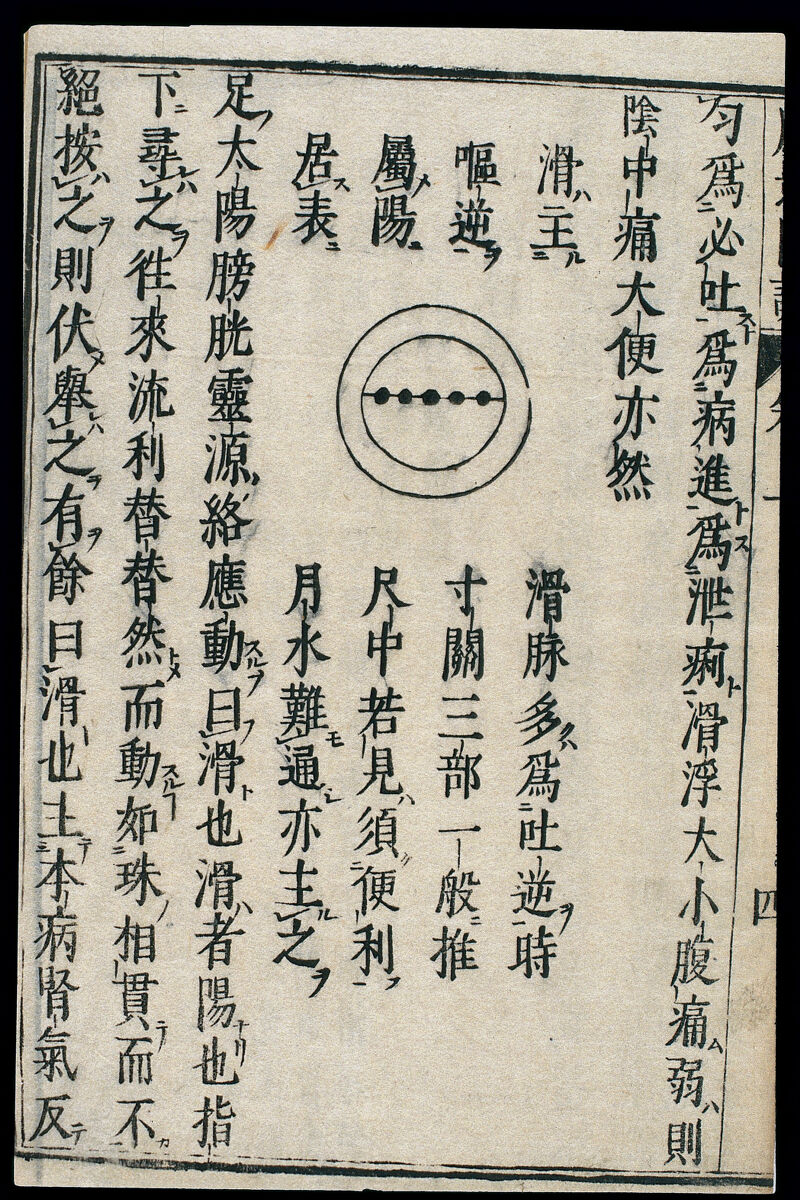 匀爲必吐爲病進爲泄痢滑浮大小腹痛弱則
陰中痛大便亦然
滑主
嘔逆
屬陽
居表
滑脉多爲吐逆時
寸關三部一般推
尺中若見須便利
月水難通亦主之
足太陽膀胱靈源絡應動曰滑也滑者陽也指
下尋之徃來流利替替然而動如珠相貫而不
絕按之則伏舉之有餘曰滑也主本病腎氣反
四